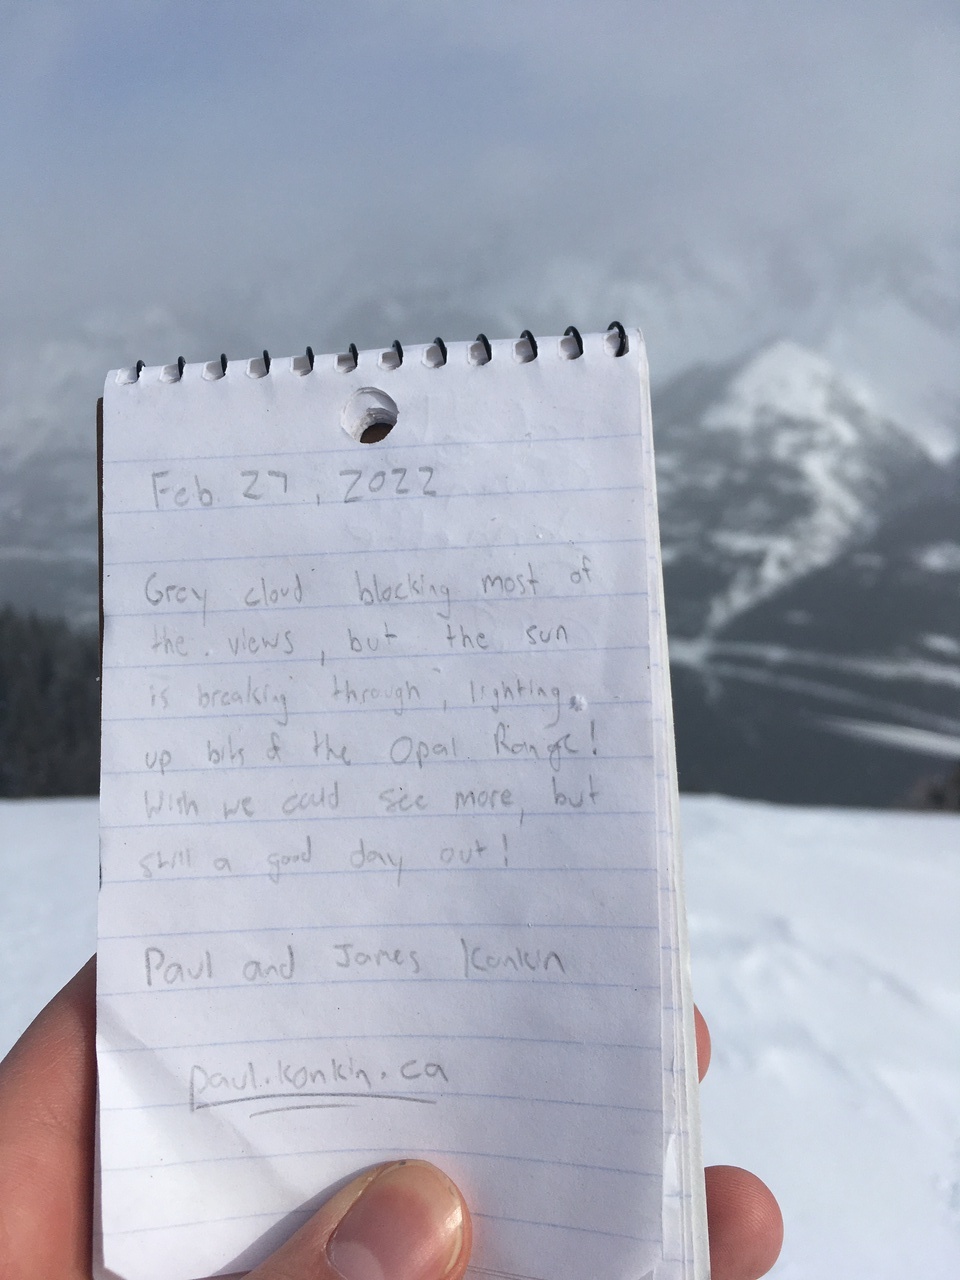 Feb. 27, 2022
Grey cloud blocking most of
the views, but the sun
is breaking through, lighting
up bits of the Opal Range!
Wish we could see more, but
still a good day out!
Paul and James Konkin
paul.konkin.ca